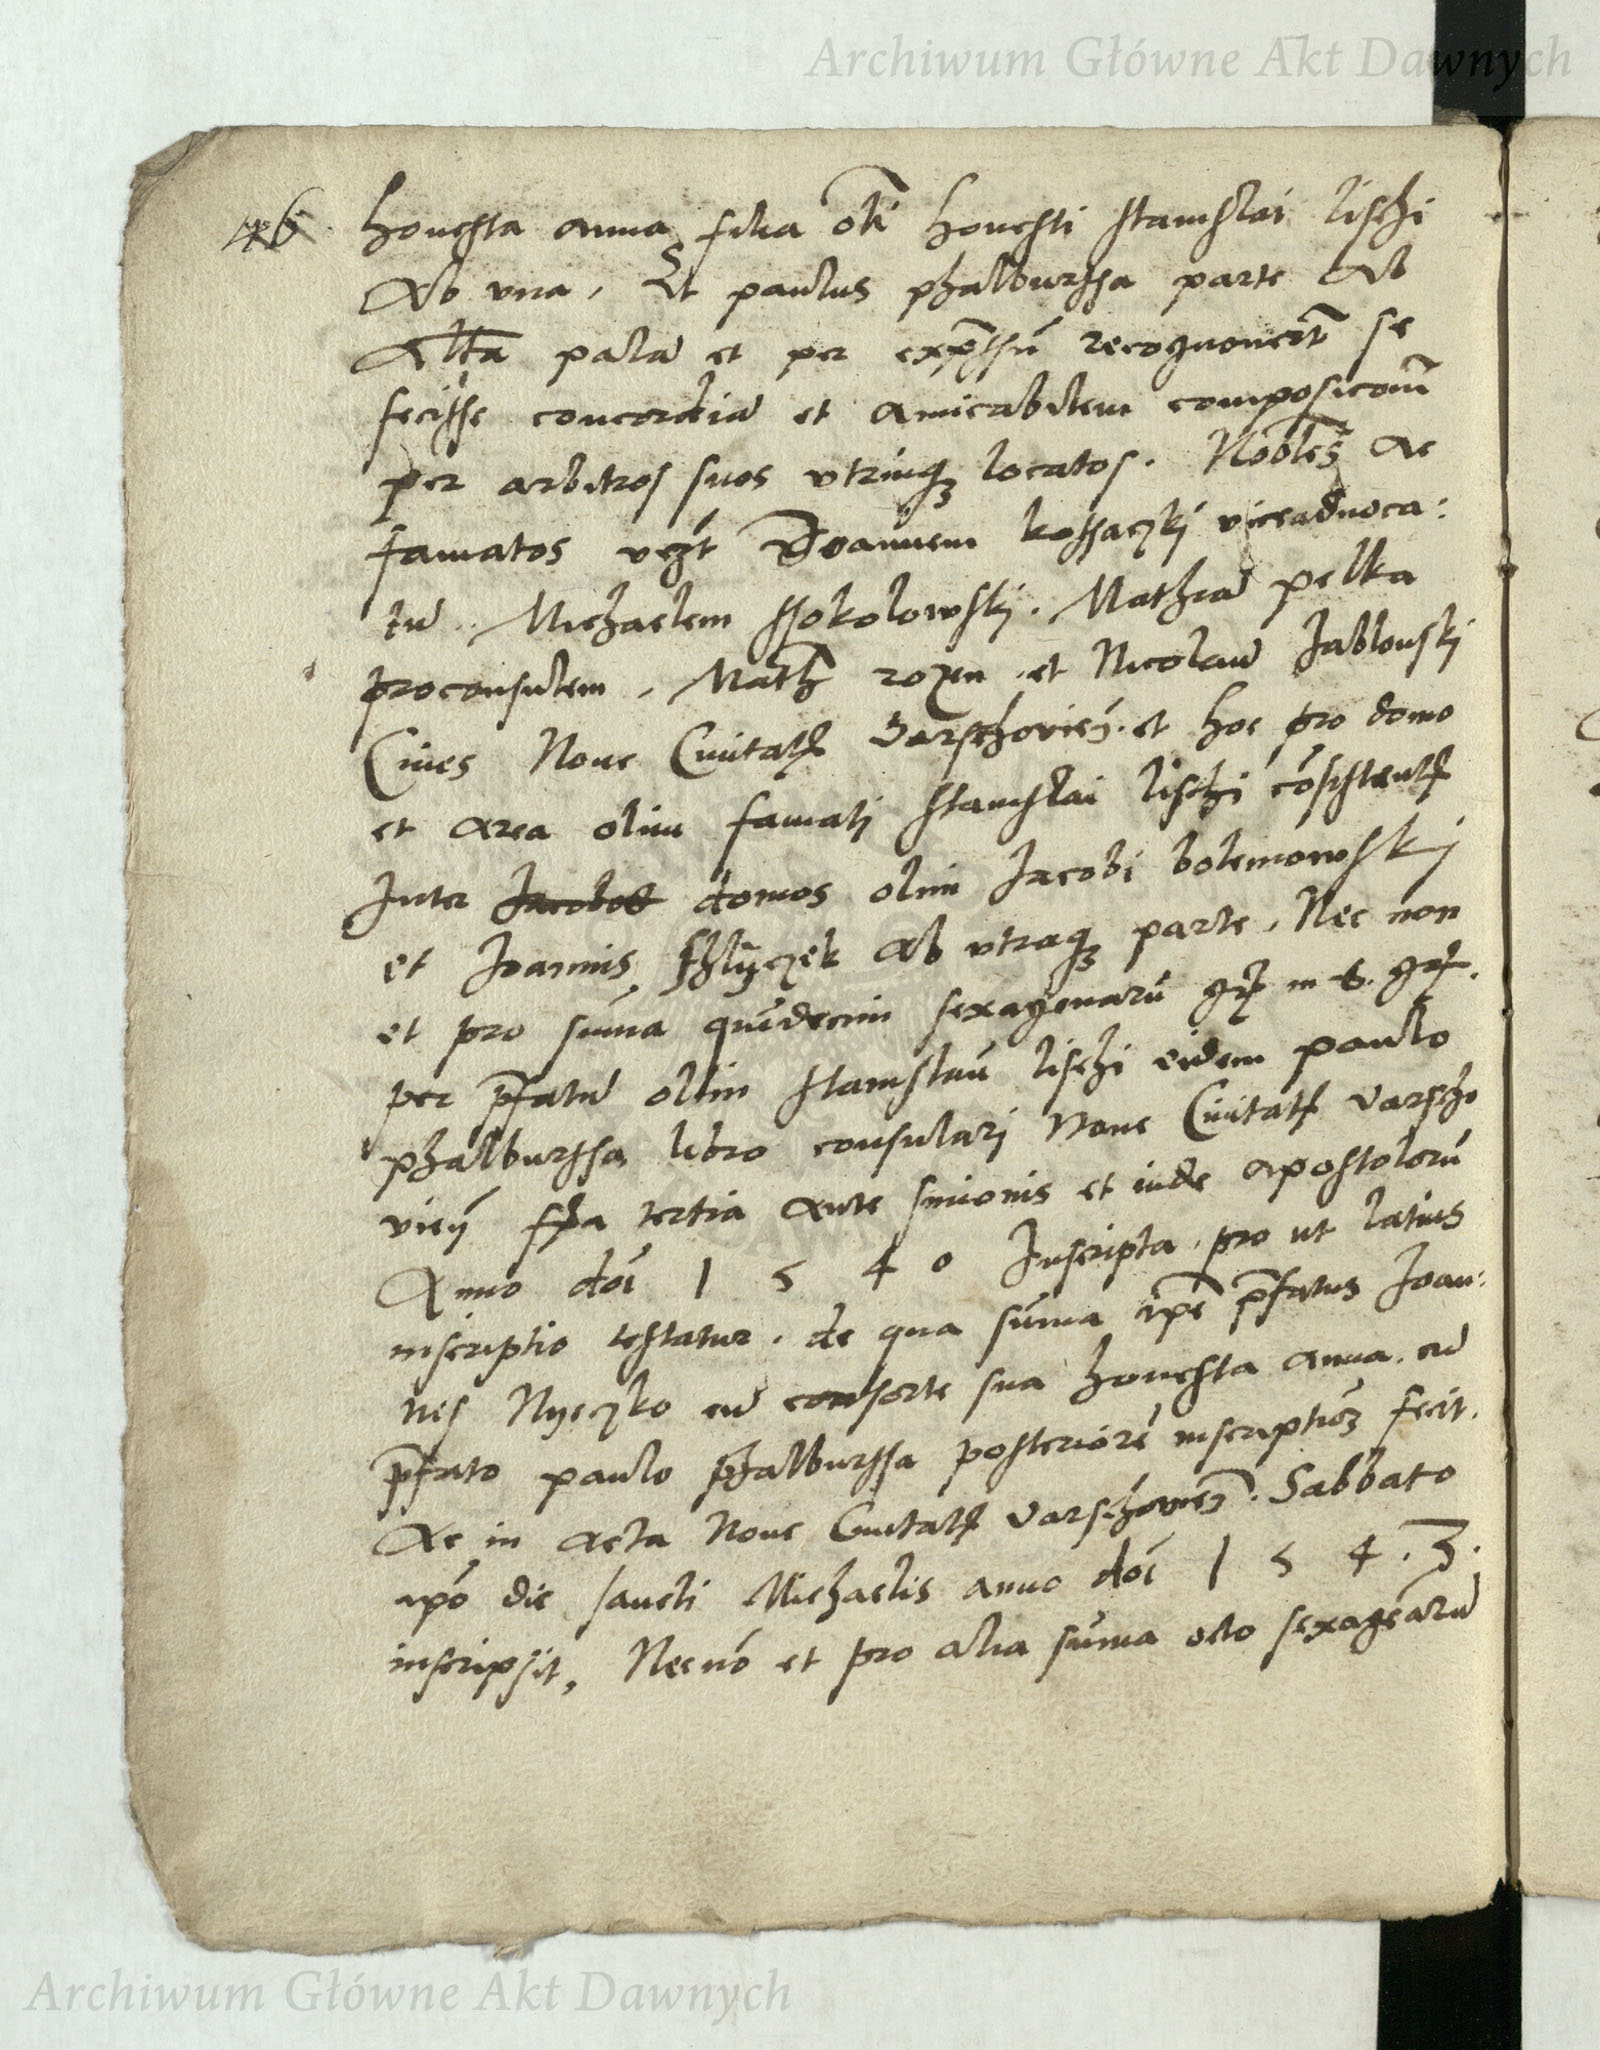 Archiwum Główne Akt Dawnych
honesta anna filia oli honesti stanislai lischi
Ab vna, Et paulus phalburssa parte Ab
Altā palā et per expssū recognouert se
fecisse concordiā et amicabilem composicōm
per arbitros suos vtrinqȝ locatos. Nobles Ac
famatos vczt Joannem kossaczkj viceaduoca:
tū. Michaelem ssokolowskj. Mathiā pelka
proconsulem, Math rozen et Nicolaū Jablonskj
Ciues Noue Ciuitatꝭ Varschovień. et hoc pro domo
et area olim famatj stanislai lischi cōsistentꝭ
Inter Jacobos domos olim Jacobi bolemowskij
et Joannis ab vtraqȝ parte, Nec non
et pro sūma quīdecim sexagenarū grꝭ in
per pfatū olim stanislaū lischi eidem paulo
phalburssa libro consularj Noue Ciuitatꝭ varscho
vień fra tertia ante simonis et iude apostolorū
Anno doī 1 5 4 0 Inscripta, pro ut latius
inscriptio testatur. de qua sūma ipse pfatus Joan:
nes Nyeczko cū consorte sua honesta anna. cū
pfato paulo phalburssa posteriorē inscriptioȝ fecit.
Ac in acta Noue Ciuitatꝭ varschovień. Sabbato
ipō die sancti Michaelis anno doī 1 5 4 . 3 .
inscripsit, Necnō et pro alia sūma octo sexagēarū
Archiwum Główne Akt Dawnych